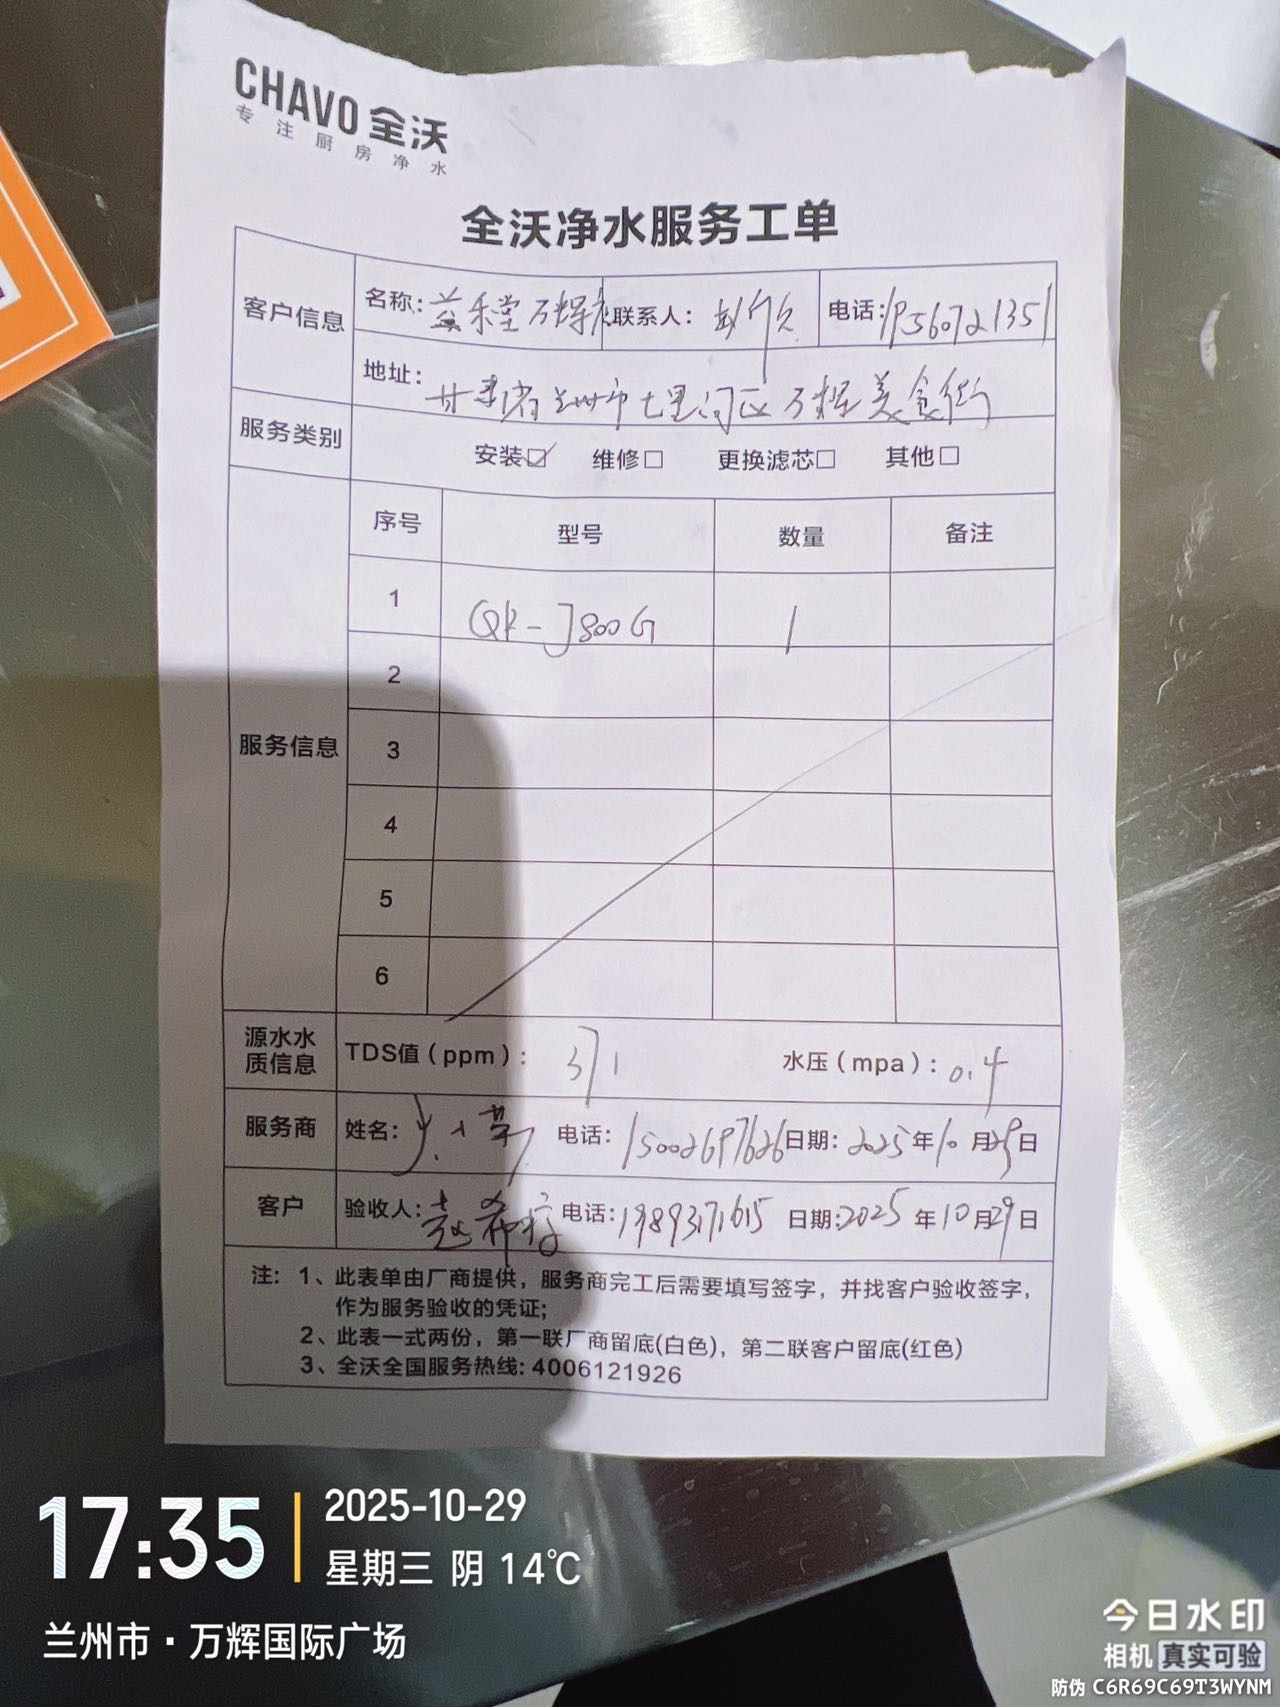 CHAVO 全沃
专注厨房净水
全沃净水服务工单
客户信息
名称：益禾堂万辉店 联系人： 电话：19560721351
地址：甘肃省兰州市七里河区万辉美食街
服务类别 安装☑ 维修☐ 更换滤芯☐ 其他☐
服务信息
序号 型号 数量 备注
1 QR-J800G 1
2
3
4
5
6
源水水质信息 TDS值（ppm）：371 水压（mpa）：0.4
服务商 姓名： 电话：15002697626 日期：2025年10月29日
客户 验收人：赵希 电话：19893171615 日期：2025年10月29日
注：1、此表单由厂商提供，服务商完工后需要填写签字，并找客户验收签字，
作为服务验收的凭证；
2、此表一式两份，第一联厂商留底(白色)，第二联客户留底(红色)
3、全沃全国服务热线：4006121926
17:35
2025-10-29
星期三 阴 14℃
兰州市·万辉国际广场
今日水印
相机 真实可验
防伪 C6R69C69T3WYNM